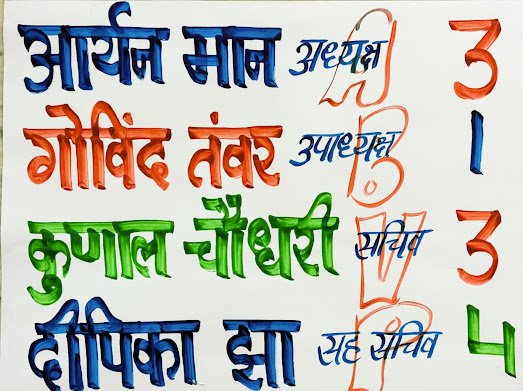 आर्यन मान अध्यक्ष 3
गोविंद तंवर उपाध्यक्ष 1
कुणाल चौधरी सचिव 3
दीपिका झा सह संचिव 4
ABVP